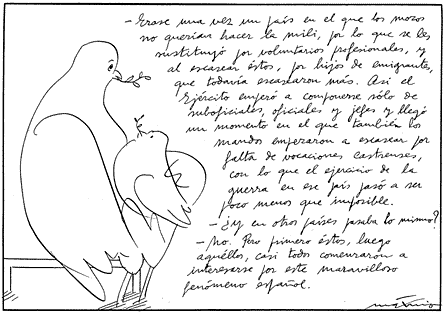 - Erase una vez un país en el que los mozos
no querían hacer la mili, por lo que se les
sustituyó por voluntarios profesionales, y
al escasear éstos, por hijos de emigrantes,
que todavía escasearon más. Así el
Ejército empezó a componerse sólo de
suboficiales, oficiales y jefes y llegó
un momento en el que también los
mandos empezaron a escasear por
falta de vocaciones castrenses,
con lo que el ejercicio de la
guerra en ese país pasó a ser
poco menos que imposible.
- ¿Y en otros países pasaba lo mismo?
- No. Pero primero éstos, luego
aquéllos, casi todos comenzaron a
interesarse por este maravilloso
fenómeno español.
máximo